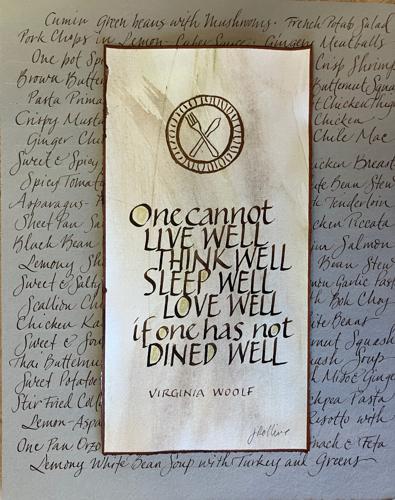 Cumin green beans with Mushrooms · French Potato Salad
Pork Chops in Lemon-Caper Sauce · Gingery Meatballs
One pot Sp
Crisp Shrimp
Brown Butte
Butternut Squa
Pasta Prima
Chicken Thig
Crispy Musta
Chicken
Ginger Chi
Chile Mac
Sweet & Spicy
cken Breast
Spicy Tomato
ite Bean Stew
Asparagus-
k Tenderloin
Sheet Pan Sa
cken Piccata
Black Bean
Salmon
Lemony Sh
Bean Stew
Sweet & Salty
mon Garlic Past
Scallion Ch
th Bok Choy
Chicken Ka
ite Beans
Sweet & Sou
rnut Squash
Thai Butternu
uash Soup
Sweet Potatoe
h Miso & Ginge
Stir Fried Coll
hpea Pasta
Lemon-Aspa
Risotto with
One Pan Orzo
nach & Feta
Lemony White Bean Soup with Turkey and Greens
One cannot
LIVE WELL
THINK WELL
SLEEP WELL
LOVE WELL
if one has not
DINED WELL
VIRGINIA WOOLF